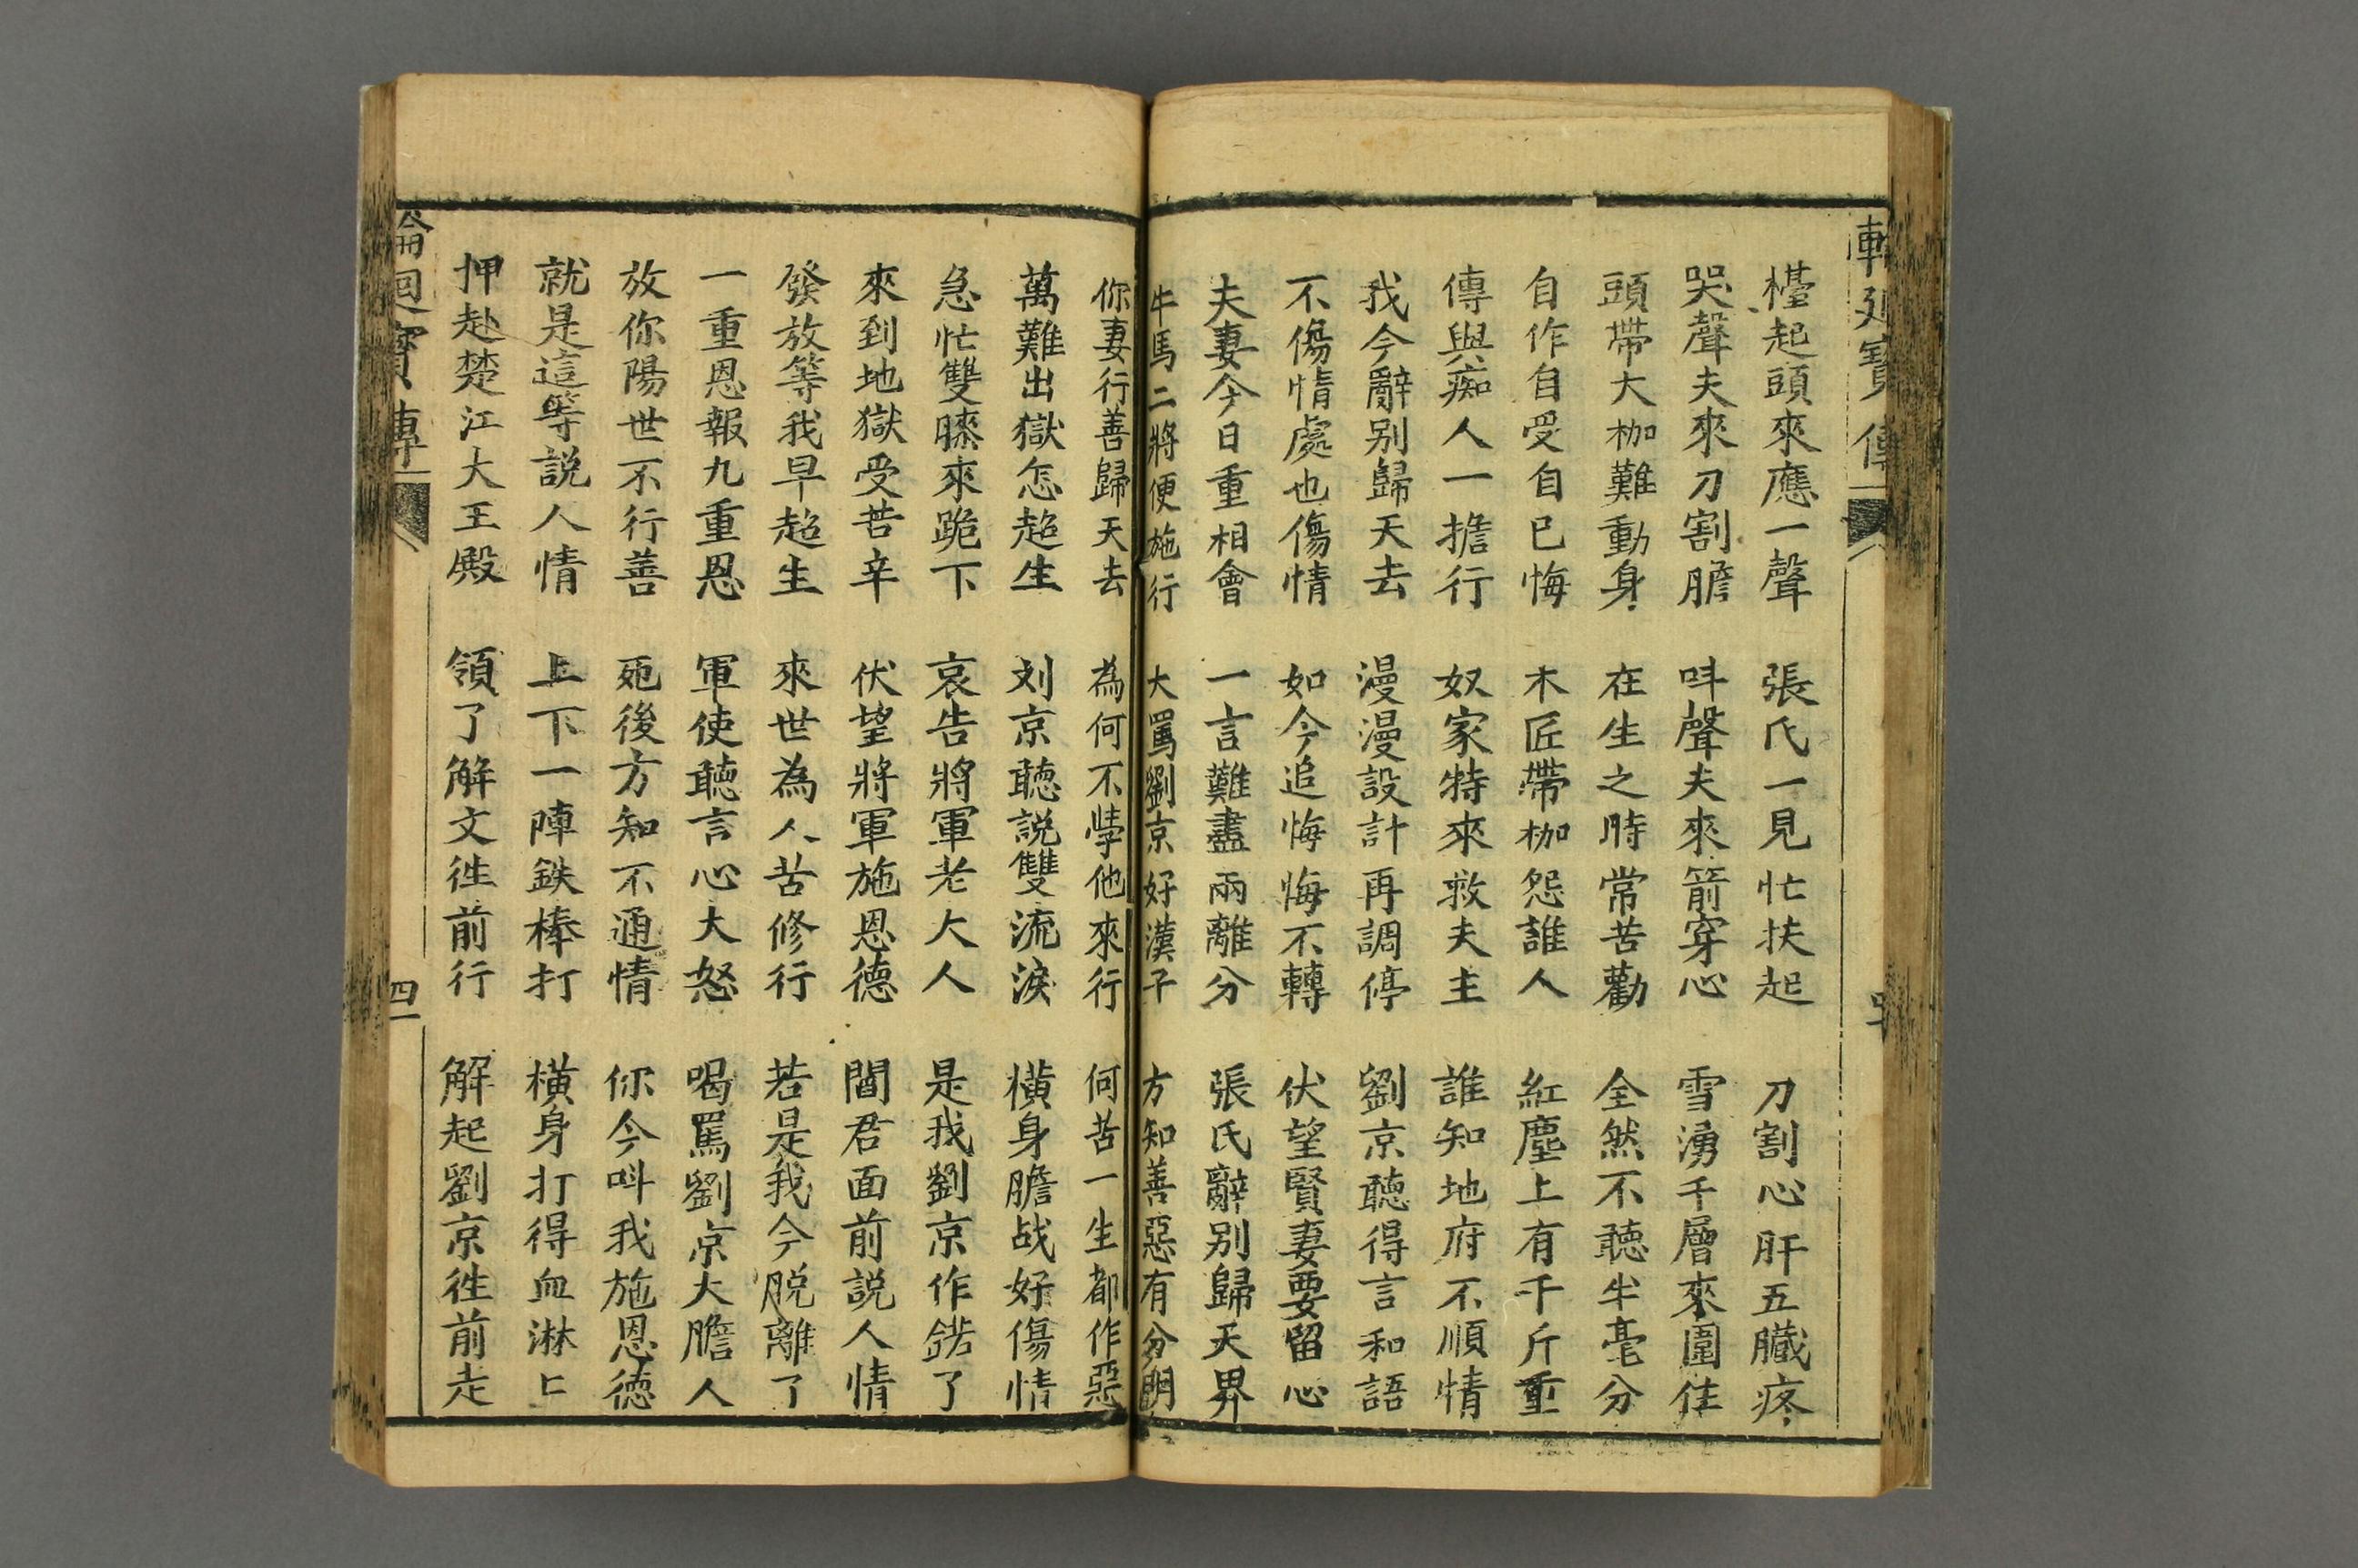 擡起頭來應一聲 張氏一見忙扶起 刀割心肝五臟疼
哭聲夫來刀割膽 呌聲夫來箭穿心 雪湧千層來圍住
頭帶大枷難動身 在生之時常苦勸 全然不聽半毫分
自作自受自已悔 木匠帶枷怨誰人 紅塵上有千斤重
傳與痴人一擔行 奴家特來救夫主 誰知地府不順情
我今辭别歸天去 漫漫設計再調停 劉京聽得言和語
不傷情處也傷情 如今追悔悔不轉 伏望賢妻要留心
夫妻今日重相會 一言難盡兩離分 張氏辭别歸天界
牛馬二將便施行 大罵劉京好漢子 方知善惡有分明
你妻行善歸天去 為何不學他來行 何苦一生都作惡
萬難出獄怎超生 刘京聽説雙流淚 橫身膽战好傷情
急忙雙膝來跪下 哀告將軍老大人 是我劉京作錯了
來到地獄受苦辛 伏望將軍施恩德 閻君面前説人情
發放等我早超生 來世為人苦修行 若是我今脱離了
一重恩報九重恩 軍使聽言心大怒 喝罵劉京大膽人
放你陽世不行善 死後方知不通情 你今呌我施恩德
就是這等説人情 上下一陣鉄棒打 橫身打得血淋匕
押赴楚江大王殿 領了解文徃前行 解起劉京徃前走
輪廻寳傳
四一